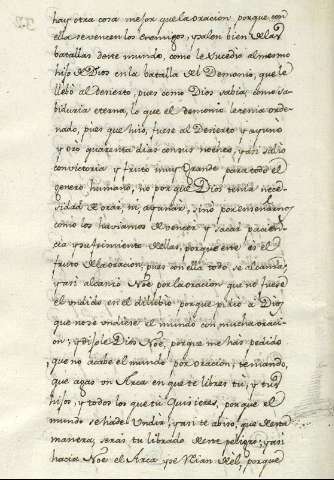 hay otra cosa mejor que la oracion, porque con
ella se vencen los enemigos, y salen bien de las
batallas deste mundo, como le sucedio al mesmo
hijo de Dios en la batalla del Demonio, que le
llebó al desierto, pues como Dios sabia, como sa-
biduria eterna, lo que el demonio le tenia orde-
nado, pues que hizo, fuese al Desierto y ayunó
y oró quarenta dias con sus noches, y asi salio
con victoria y fruto muy grande para todo el
genero humano, no porque Dios tenia nece-
sidad de orar, ni ayunar, sino por enseñarnos
como los hauiamos de vencer y sacar pacien-
cia y sufrimiento dellas, porque este es el
fruto de la oracion, pues con ella todo se alcansa,
y asi alcanzó Noe por la oracion que no fuese
el undido en el dilubio porque pidio a Dios
que no se undiese el mundo con mucha oraci-
on; y dijole Dios Noe, porque me has pedido
que no acabe el mundo por oracion, teniendo,
que agas un Arca en que te libres tu, y tus
hijos, y todos los que tu quisieres, porque el
mundo se ha de undir, y asi te abiso, que desta
manera, seras tu librado deste peligro; y asi
hacia Noe el Arca y se reian del, porque